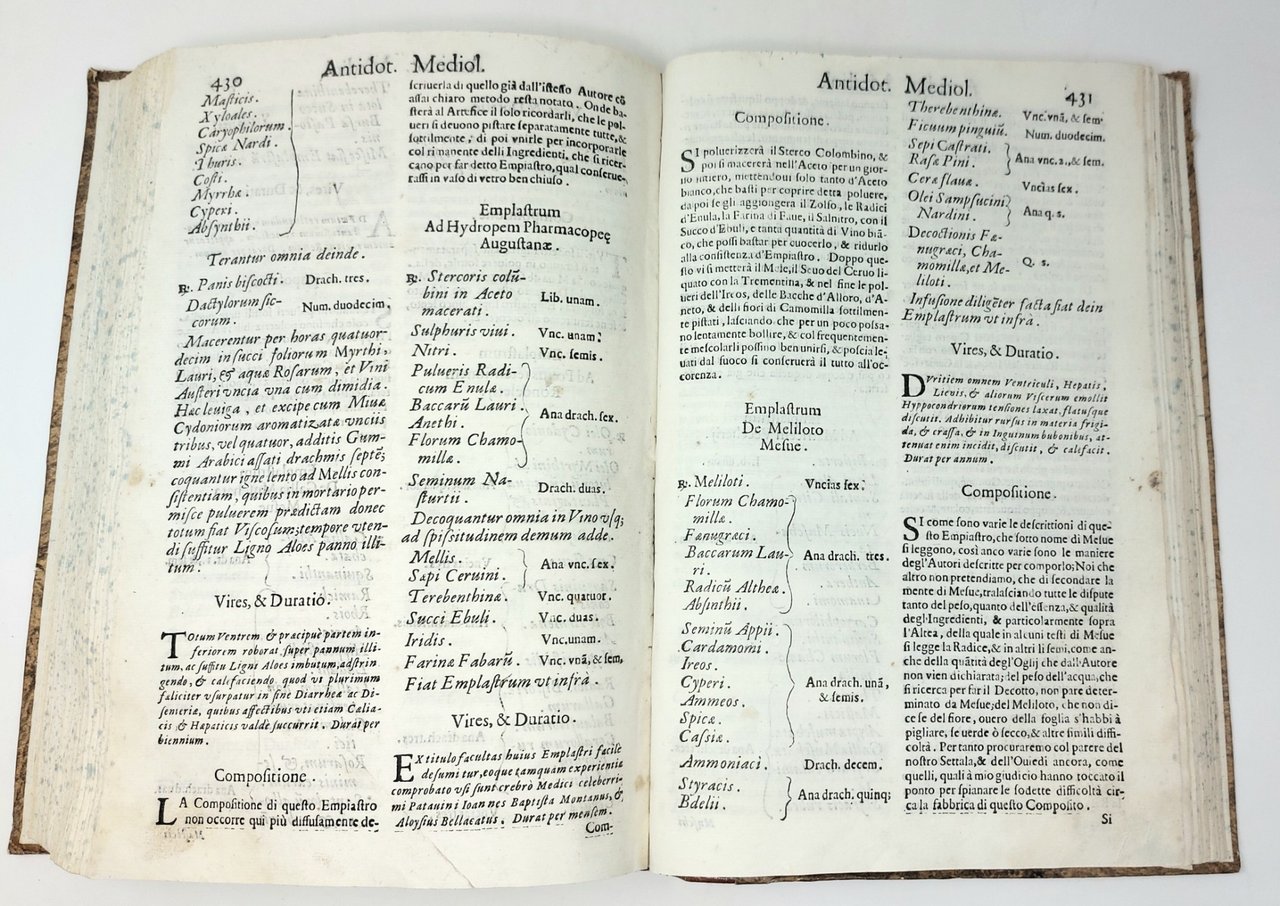 430
Antidot. Mediol.
Masticis.
Xyloales.
Caryophilorum.
Spicæ Nardi.
Thuris.
Costi.
Myrrhæ.
Cyperi.
Absynthii.
Terantur omnia deinde.
℞. Panis biscocti. Drach. tres.
Dactylorum sic-
corum. Num. duodecim.
Macerentur per horas quatuor-
decim in succi foliorum Myrthi,
Lauri, & aquæ Rosarum, et Vini
Austeri vncia vna cum dimidia.
Hæc leviga, et excipe cum Miuæ
Cydoniorum aromatizatæ vnciis
tribus, vel quatuor, additis Gum-
mi Arabici assati drachmis septē;
coquantur igne lento ad Mellis con-
sistentiam, quibus in mortario per-
misce puluerem prædictam donec
totum fiat Viscosum; tempore vten-
di suffitur Ligno Aloes panno illi-
tum.
Vires, & Duratio.
TOtum Ventrem & præcipuè partem in-
feriorem roborat super pannum illi-
tum, ac suffitu Ligni Aloes imbutum, adstrin
gendo, & calefaciendo quod vt plurimum
faliciter vsurpatur in fine Diarrheæ ac Di-
senteriæ, quibus affectibus vti etiam Cælia-
cis & Hæpaticis valdè succurrit. Durat per
biennium.
Compositione.
LA Compositione di questo Empiastro
non occorre qui più diffusamente de-
scriuerla di quello già dall'istesso Autore cō
assai chiaro metodo resta notato. Onde ba-
sterà al Artefice il solo ricordarli, che le pol-
ueri si deuono pistare separatamente tutte, &
sottilmente, di poi vnirle per incorporarle
col rimanente delli Ingredienti, che si ricer-
cano per far detto Empiastro, qual conserue-
rassi in vaso di vetro ben chiuso.
Emplastrum
Ad Hydropem Pharmacopeę
Augustanæ.
℞. Stercoris colū-
bini in Aceto
macerati. Lib. unam.
Sulphuris viui. Vnc. unam.
Nitri. Vnc. semis.
Pulueris Radi-
cum Enulæ.
Baccarū Lauri.
Anethi. Ana drach. sex.
Florum Chamo-
millæ.
Seminum Na-
sturtii. Drach. duas.
Decoquantur omnia in Vino vsq;
ad spissitudinem demum adde.
Mellis.
Sapi Ceruini. Ana vnc. sex.
Terebenthinæ. Vnc. quatuor.
Succi Ebuli. Vnc. duas.
Iridis. Vnc. unam.
Farinæ Fabarū. Vnc. vnā, & sem.
Fiat Emplastrum vt infrà.
Vires, & Duratio.
EX titulo facultas huius Emplastri facile
desumitur, eoque tamquam experientia
comprobato vsi sunt crebrò Medici celeberri-
mi Patauini Ioannes Baptista Montanus, &
Aloysius Bellacatus. Durat per mensem.
Com-
Antidot. Mediol.
431
Compositione.
SI poluerizzerà il Sterco Colombino, &
poi si macererà nell'Aceto per un gior-
no intiero, mettendoui solo tanto d'Aceto
bianco, che basti per coprire detta poluere,
da poi se gli aggiongerà il Zolfo, le Radici
d'Enula, la Farina di Faue, il Salnitro, con il
Succo d'Ebuli, e tanta quantità di Vino biā-
co, che possi bastar per cuocerlo, & ridurlo
alla consistenza d'Empiastro. Doppo que-
sto vi si metterà il Mele, il Seuo del Ceruo li-
quato con la Trementina, & nel fine le pol-
ueri dell'Ireos, delle Bacche d'Alloro, d'A-
neto, & delli fiori di Camomilla sottilmen-
te pistati, lasciando che per un poco possa-
no lentamente bollire, & col frequentemen-
te mescolarli possino ben unirsi, & poscia le-
uati dal fuoco si conseruerà il tutto all'oc-
correnza.
Emplastrum
De Meliloto
Mesue.
℞. Meliloti. Vncias sex.
Florum Chamo-
millæ.
Fænugræci.
Baccarum Lau-
ri. Ana drach. tres.
Radicū Altheæ.
Absinthii.
Seminū Appii.
Cardamomi.
Ireos.
Cyperi. Ana drach. unā,
Ammeos. & semis.
Spicæ.
Cassiæ.
Ammoniaci. Drach. decem.
Styracis.
Bdelii. Ana drach. quinq;
Therebenthinæ. Vnc. vnā, & sem.
Ficuum pinguiū. Num. duodecim.
Sepi Castrati.
Rasæ Pini. Ana vnc. 2., & sem.
Ceræ flauæ. Vncias sex.
Olei Sampsucini
Nardini. Ana q. s.
Decoctionis Fæ-
nugræci, Cha-
momillæ, et Me-
liloti. Q. s.
Infusione diligēter facta fiat dein
Emplastrum vt infrà.
Vires, & Duratio.
DVritiem omnem Ventriculi, Hepatis,
Lienis, & aliorum Viscerum emollit
Hyppocondriorum tensiones laxat, flatusque
discutit. Adhibitur rursus in materia frigi-
da, & crassa, & in Inguinum bubonibus, at-
tenuat enim incidit, discutit, & calefacit.
Durat per annum.
Compositione.
SI come sono varie le descrittioni di que-
sto Empiastro, che sotto nome di Mesue
si leggono, così anco varie sono le maniere
degl'Autori descritte per comporlo; Noi che
altro non pretendiamo, che di secondare la
mente di Mesue, tralasciando tutte le dispute
tanto del peso, quanto dell'essenza, & qualità
degl'Ingredienti, & particolarmente sopra
l'Altea, della quale in alcuni testi di Mesue
si legge la Radice, & in altri li semi, come an-
che della quātità degl'Oglij che dall'Autore
non vien dichiarata; del peso dell'acqua, che
si ricerca per far il Decotto, non pare deter-
minato da Mesue; del Meliloto, che non di-
ce se del fiore, ouero della foglia s'habbi à
pigliare, se uerde ò secco, & altre simili diffi-
coltà. Per tanto procuraremo col parere del
nostro Settala, & dell'Ouiedi ancora, come
quelli, quali à mio giudicio hanno toccato il
ponto per spianare le sodette difficoltà cir-
ca la fabbrica di questo Composito.
Si